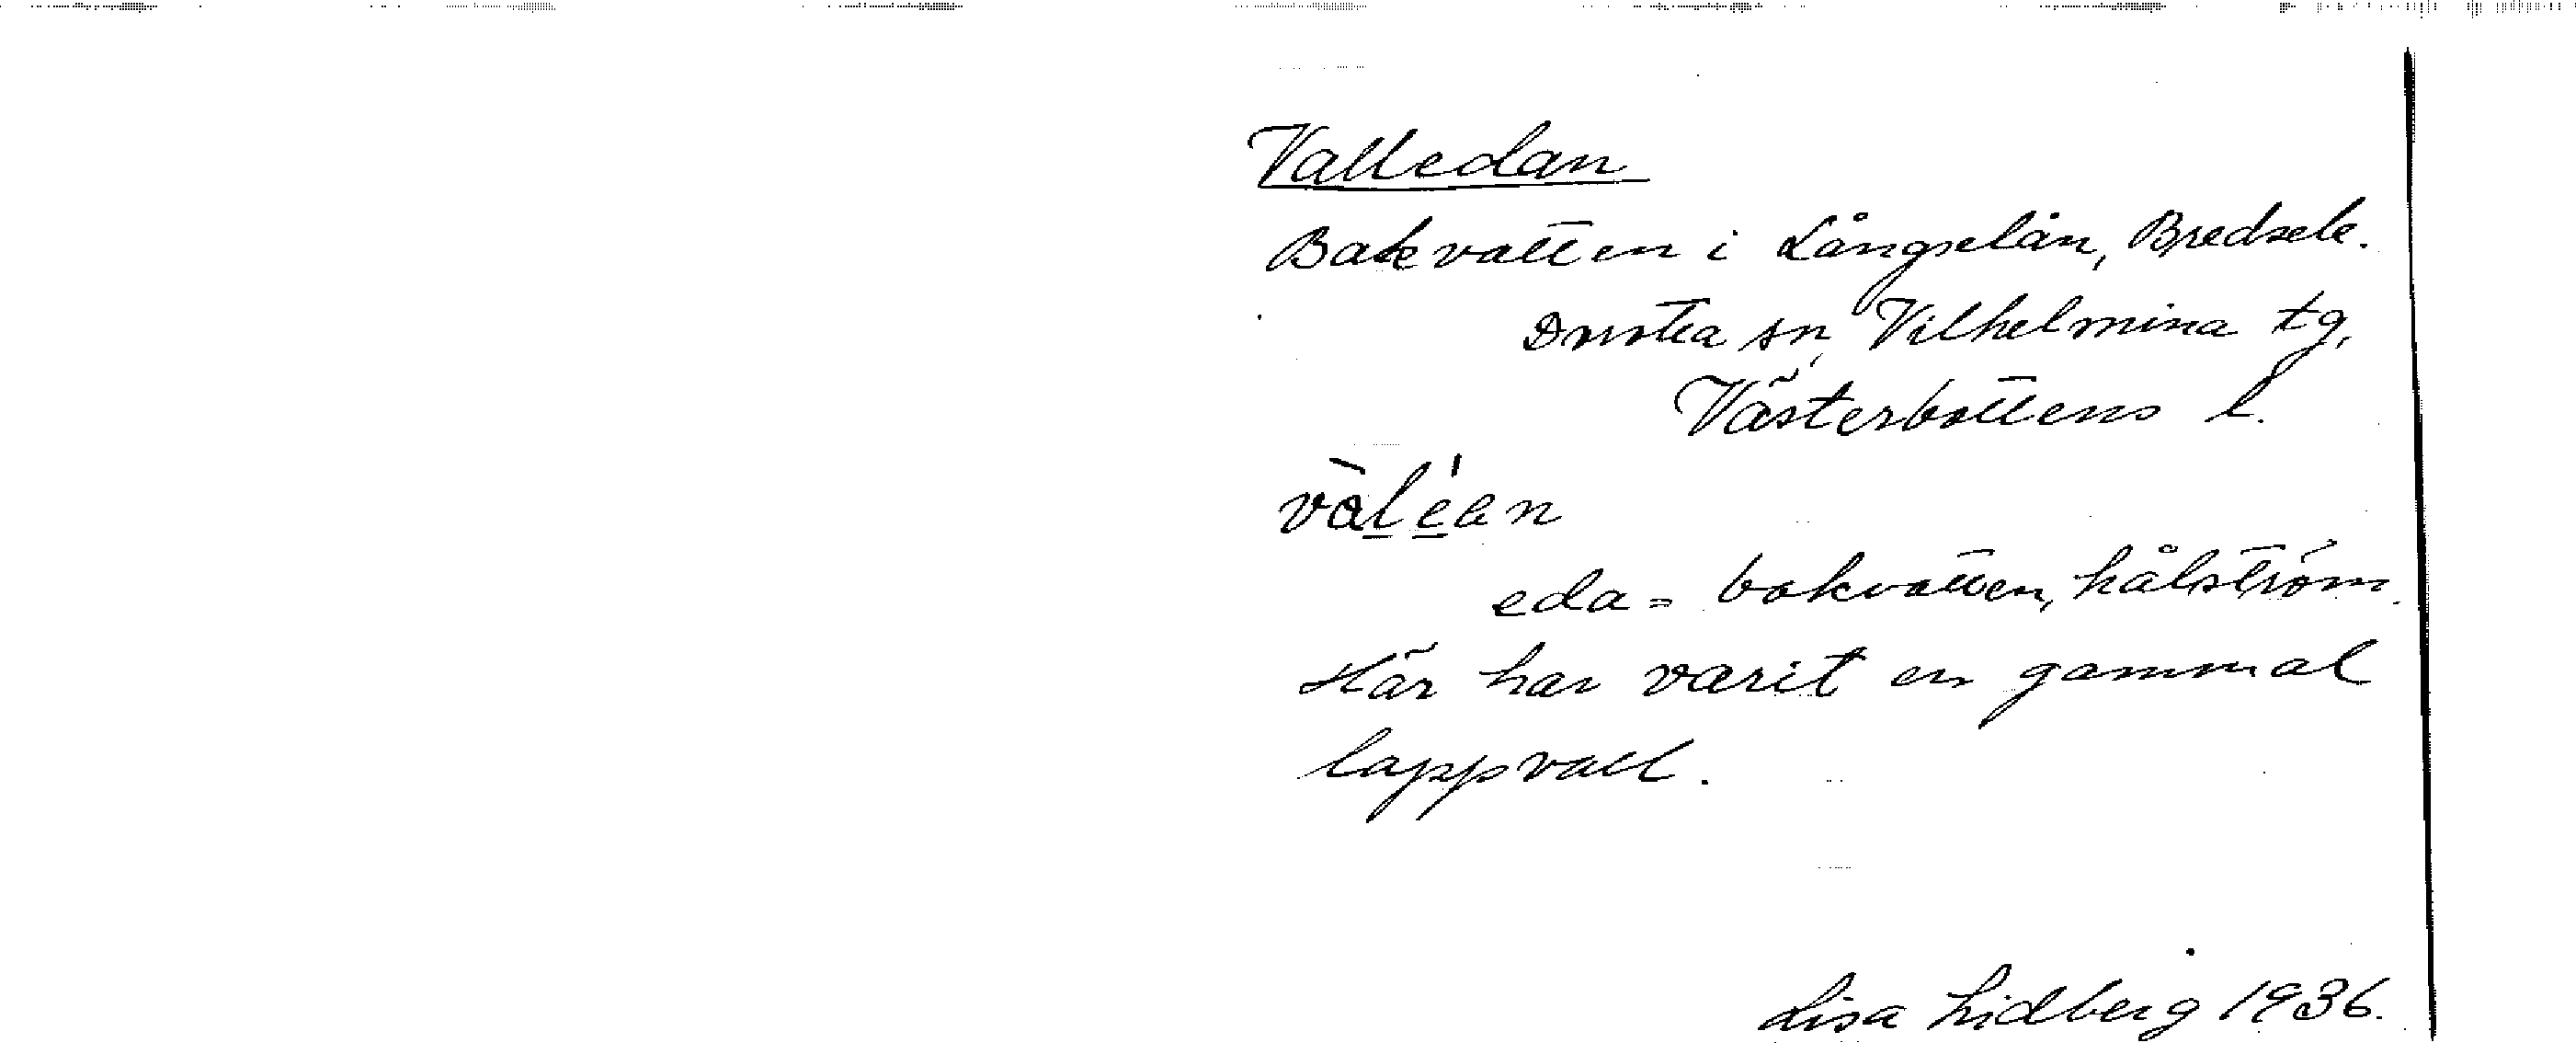 Valledan
Bakvatten i Långselån, Bredsele.
Dorotea sn, Vilhelmina tg,
Västerbottens l.
eda = bakvatten, hålström.
Här har varit en gammal
lappvall.
Lisa Lidberg 1936.